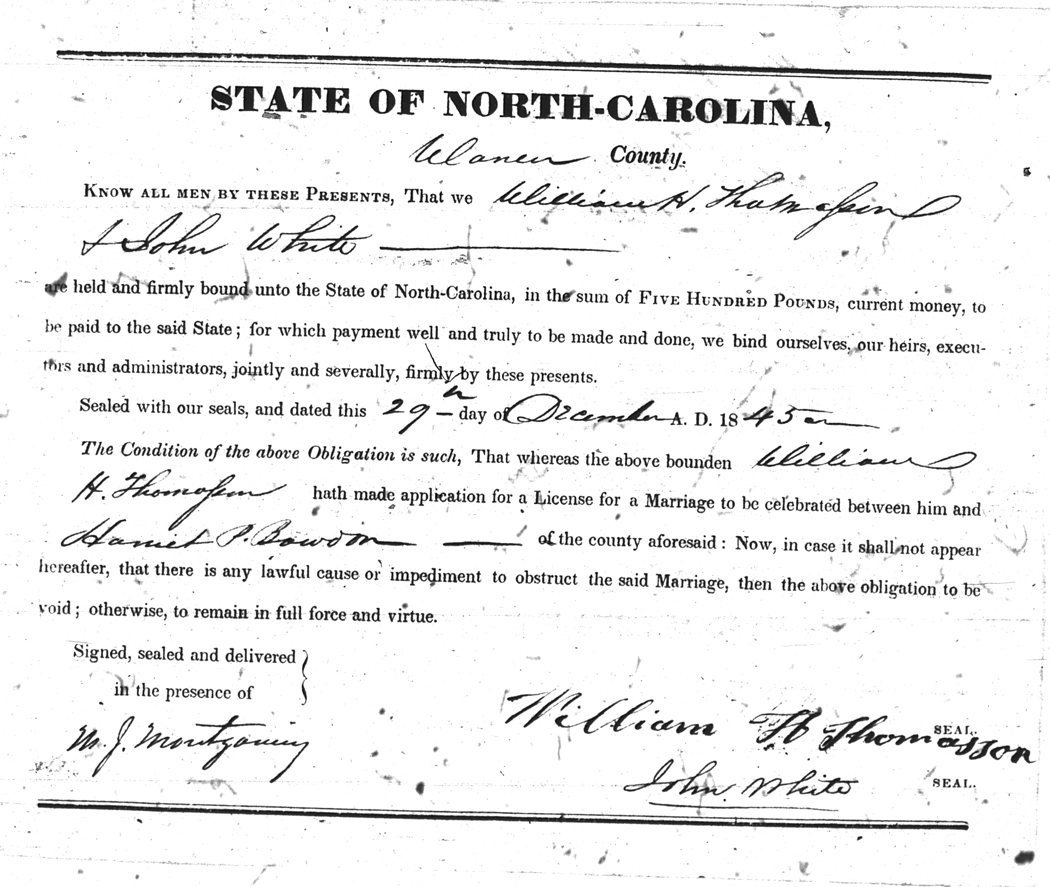 STATE OF NORTH-CAROLINA,
Warren County.
KNOW ALL MEN BY THESE PRESENTS, That we William H. Thomasson
& John White
are held and firmly bound unto the State of North-Carolina, in the sum of FIVE HUNDRED POUNDS, current money, to
be paid to the said State; for which payment well and truly to be made and done, we bind ourselves, our heirs, execu-
tors and administrators, jointly and severally, firmly by these presents.
Sealed with our seals, and dated this 29th day of December A. D. 1845
The Condition of the above Obligation is such, That whereas the above bounden William
H. Thomasson hath made application for a License for a Marriage to be celebrated between him and
Harriet P. Bowdon of the county aforesaid: Now, in case it shall not appear
hereafter, that there is any lawful cause or impediment to obstruct the said Marriage, then the above obligation to be
void; otherwise, to remain in full force and virtue.
Signed, sealed and delivered
in the presence of
M. J. Montgomery
William H Thomasson SEAL.
John White SEAL.